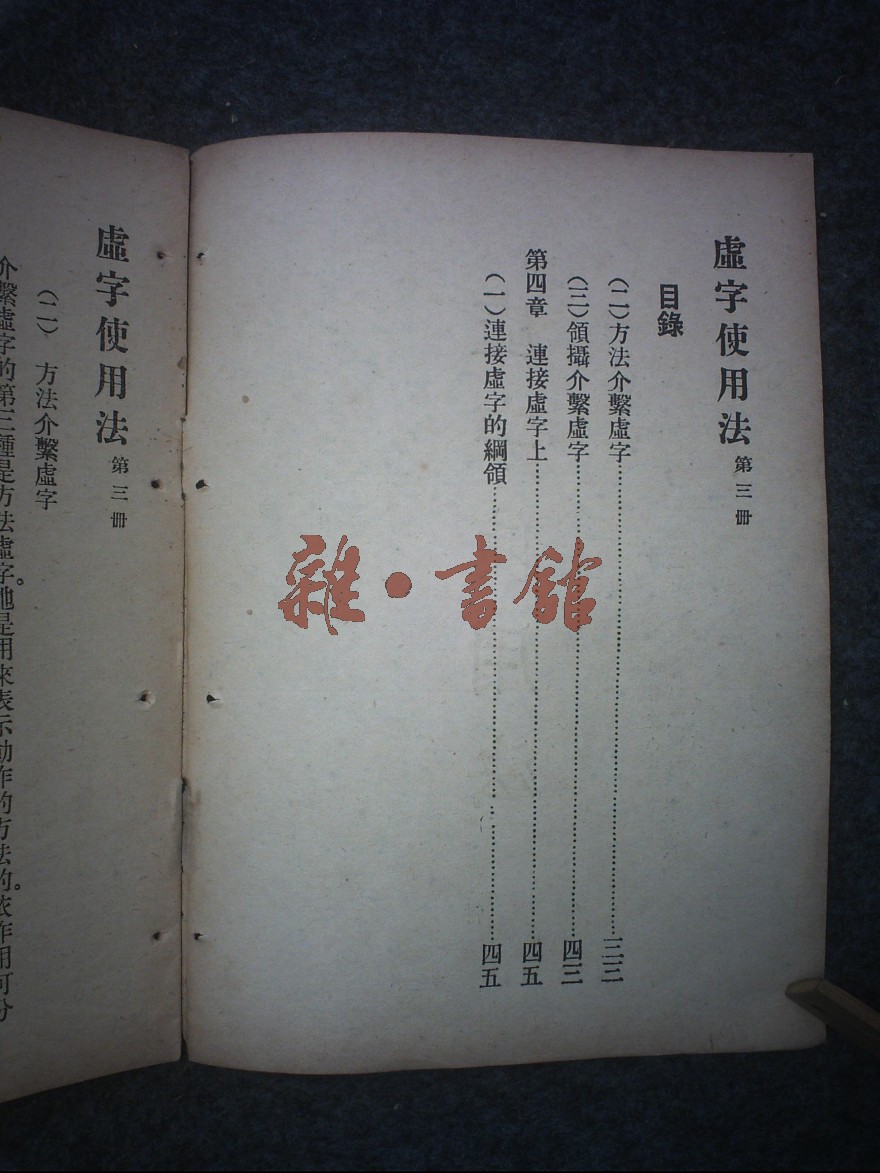 虛字使用法 第三冊
目錄
(二)方法介繫虛字……三三
(三)領攝介繫虛字……四三
第四章 連接虛字上……四五
(一)連接虛字的綱領……四五
雜·書館
虛字使用法 第三冊
(二) 方法介繫虛字
介繫虛字的第三種是方法虛字。是用來表示動作的方法的。依作用可分